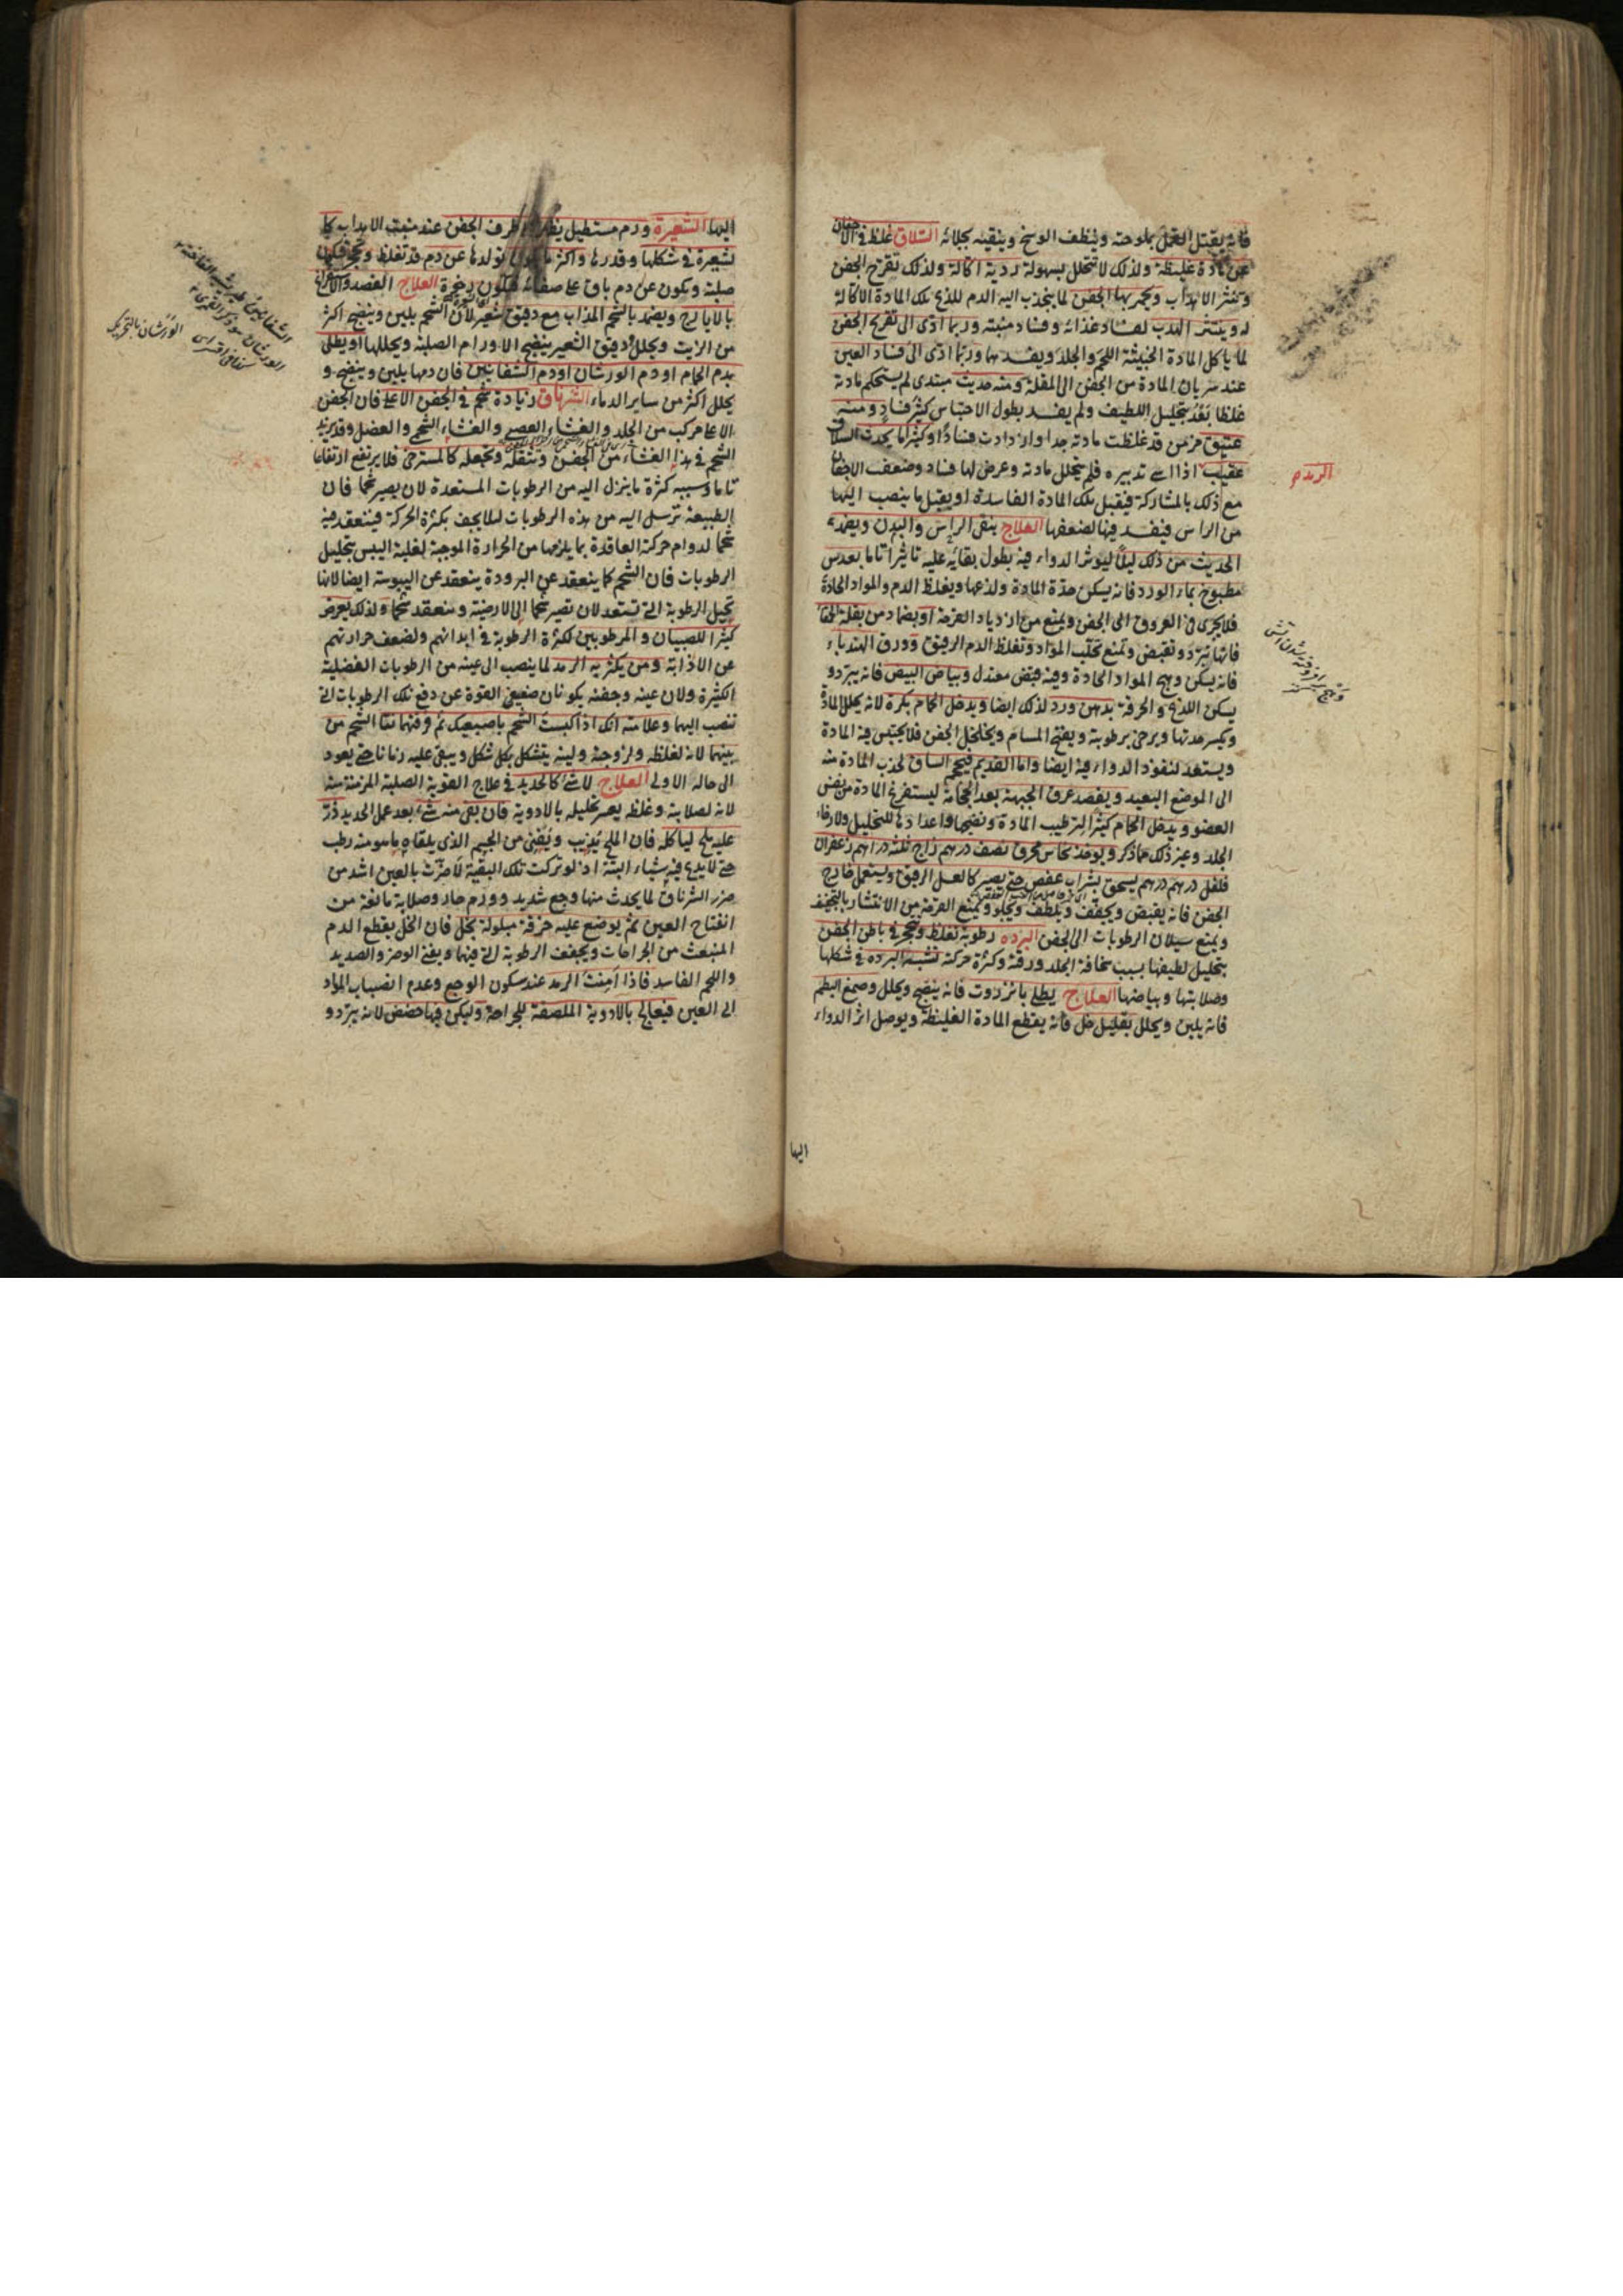 فانه يقتل القمل بملوحته وينظف الوسخ وينقيه بجلائه السلاق غلظ في الاجفان
عن مادة غليظة ولذلك لا تتحلل بسهولة ردية اكالة ولذلك تقرح الجفن
وتنثر الاهداب ويحمر بها الجفن لما ينجذب اليه الدم للذع تلك المادة الاكالة
له وينتثر الهدب لفساد غذائه وفساد منبته وربما ادى الى تقريح الجفن
لما ياكل المادة الخبيثة اللحم والجلد ويفسدهما وربما ادى الى فساد العين
عند سريان المادة من الجفن الى المقلة ومنه حديث مبتدى لم يستحكم مادته
غلظا بعد بتحليل اللطيف ولم يفسد بطول الاحتباس كثير فساد ومنه
عتيق مزمن قد غلظت مادته جدا وازدادت فسادا وكثيرا ما يحدث السلاق
عقيب اذا اسى تدبيره فلم يتحلل مادته وعرض لها فساد وضعف الاجفان
الرمد
مع ذلك بالمشاركة فيقبل تلك المادة الفاسدة او يقبل ما ينصب اليها
من الراس فيفسد فيها لضعفها العلاج ينقى الراس والبدن ويضمد
الحديث من ذلك ليلا ليوثر الدواء فيه بطول بقائه عليه تاثيرا تاما بعدس
مطبوخ بماء الورد فانه يسكن حدة المادة ولذعها ويغلظ الدم والمواد الحادة
فلا يجرى في العروق الى الجفن ويمنع من ازدياد القرحة او بضماد من بقلة الحمقا
فانها تبرد وتقبض وتمنع تحلب المواد وتغلظ الدم الرقيق وورق الهندباء
فانه يسكن وهج المواد الحادة وفيه قبض معتدل وبياض البيض فانه يبرد و
يسكن اللذع والحرقة بدهن ورد لذلك ايضا ويدخل الحمام بكرة لانه يحلل المادة
ويكسر حدتها ويرخى برطوبته ويفتح المسام ويخلخل الجفن فلا يحتبس فيه المادة
ويستعد لنفوذ الدواء فيه ايضا واما القديم فيحجم الساق لجذب المادة منه
الى الموضع البعيد ويفصد عرق الجبهة بعد الحجامة ليستفرغ المادة من نفس
العضو ويدخل الحمام كثيرا لترطيب المادة ونضجها واعدادها للتحليل ولارخاء
الجلد وغير ذلك مما ذكر ويوخذ نحاس محرق نصف درهم زاج ثلثة دراهم زعفران
فلفل درهم درهم يسحق بشراب عفص حتى يصير كالعسل الرقيق ويستعمل خارج
الجفن فانه يقبض ويجفف ويلطف ويجلو ويمنع القرحة من الانتشار بالتجفيف
ويمنع سيلان الرطوبات الى الجفن البرده رطوبة تغلظ وتتحجر في باطن الجفن
بتحليل لطيفها بسبب سخافة الجلد ورقته وكثرة حركته تشبه البرده في شكلها
وصلابتها وبياضها العلاج يطلى بانزروت فانه ينضج ويحلل وصمغ البطم
فانه يلين ويحلل بقليل خل فانه يقطع المادة الغليظة ويوصل اثر الدواء
اليها
اليها الشعيرة ورم مستطيل يظهر طرف الجفن عند منبت الاهداب كا
لشعيرة في شكلها وقدرها واكثر ما يكون تولدها عن دم قد تغلظ وتحجر فيكون
صلبة وتكون عن دم باق على صفائه فيكون رخوة العلاج الفصد والاستفراغ
بالايارج ويضمد بالشحم المذاب مع دقيق شعير لان الشحم يلين وينضج اكثر
من الزيت ويحلل ودقيق الشعير ينضج الاورام الصلبة ويحللها او يطلى
بدم الحمام او دم الورشان او دم الشفانين فان دمها يلين وينضج و
يحلل اكثر من ساير الدماء الشرناق زيادة شحم في الجفن الاعلى فان الجفن
الاعلى مركب من الجلد والغشاء العصبى والغشاء الشحم والعضل وقد يزيد
الشحم في هذا الغشاء من الجفن ويثقله ويجعله كالمسترخى فلا يرتفع ارتفاعا
تاما وسببه كثرة ما ينزل اليه من الرطوبات المستعدة لان يصير شحما فان
الطبيعة ترسل اليه من هذه الرطوبات لئلا يجف بكثرة الحركة فينعقد فيه
شحما لدوام حركته العاقدة بما يلزمها من الحرارة الموجبة لغلبة اليبس بتحليل
الرطوبات فان الشحم كما ينعقد عن البرودة ينعقد عن اليبوسة ايضا لانها
تحيل الرطوبة التى تستعد لان تصير شحما الى الارضية وينعقد شحما ولذلك يعرض
كثيرا للصبيان والمرطوبين لكثرة الرطوبة في ابدانهم ولضعف حرارتهم
عن الاذابة ومن يكثر به الرمد لما ينصب الى عينه من الرطوبات الفضلية
الكثيرة ولان عينه وجفنه يكونان ضعيفى القوة عن دفع تلك الرطوبات التى
تنصب اليها وعلامته انك اذا كبست الشحم باصبعيك ثم فرقتهما نتا الشحم من
بينهما لانه لغلظه ولزوجته ولينه يتشكل بكل شكل ويبقى عليه زمانا حتى يعود
الى حاله الاولى العلاج لا شئ كالحديد في علاج القوية الصلبة المزمنة منه
لانه لصلابته وغلظه يعسر تحليله بالادوية فان بقى منه شئ بعد عمل الحديد ذر
عليه ملح لياكله فان الملح يذيب ويفنى من الجسم الذى يلقاه ما هو منه رطب
حتى لا يدع فيه شياء البتة اذ لو تركت تلك البقية لاضرت بالعين اشد من
ضرر الشرناق لما يحدث منها وجع شديد وورم حار وصلابة مانعة من
انفتاح العين ثم يوضع عليه خرقة مبلولة بخل فان الخل يقطع الدم
المنبعث من الجراحات ويجفف الرطوبة التى فيها ويفنى الوضر والصديد
واللحم الفاسد فاذا امنت الرمد عند سكون الوجع وعدم انصباب المواد
الى العين فيعالج بالادوية الملصقة للجراحة وليكن فيها حضض لانه يبرد و
الورشان بالتحريك